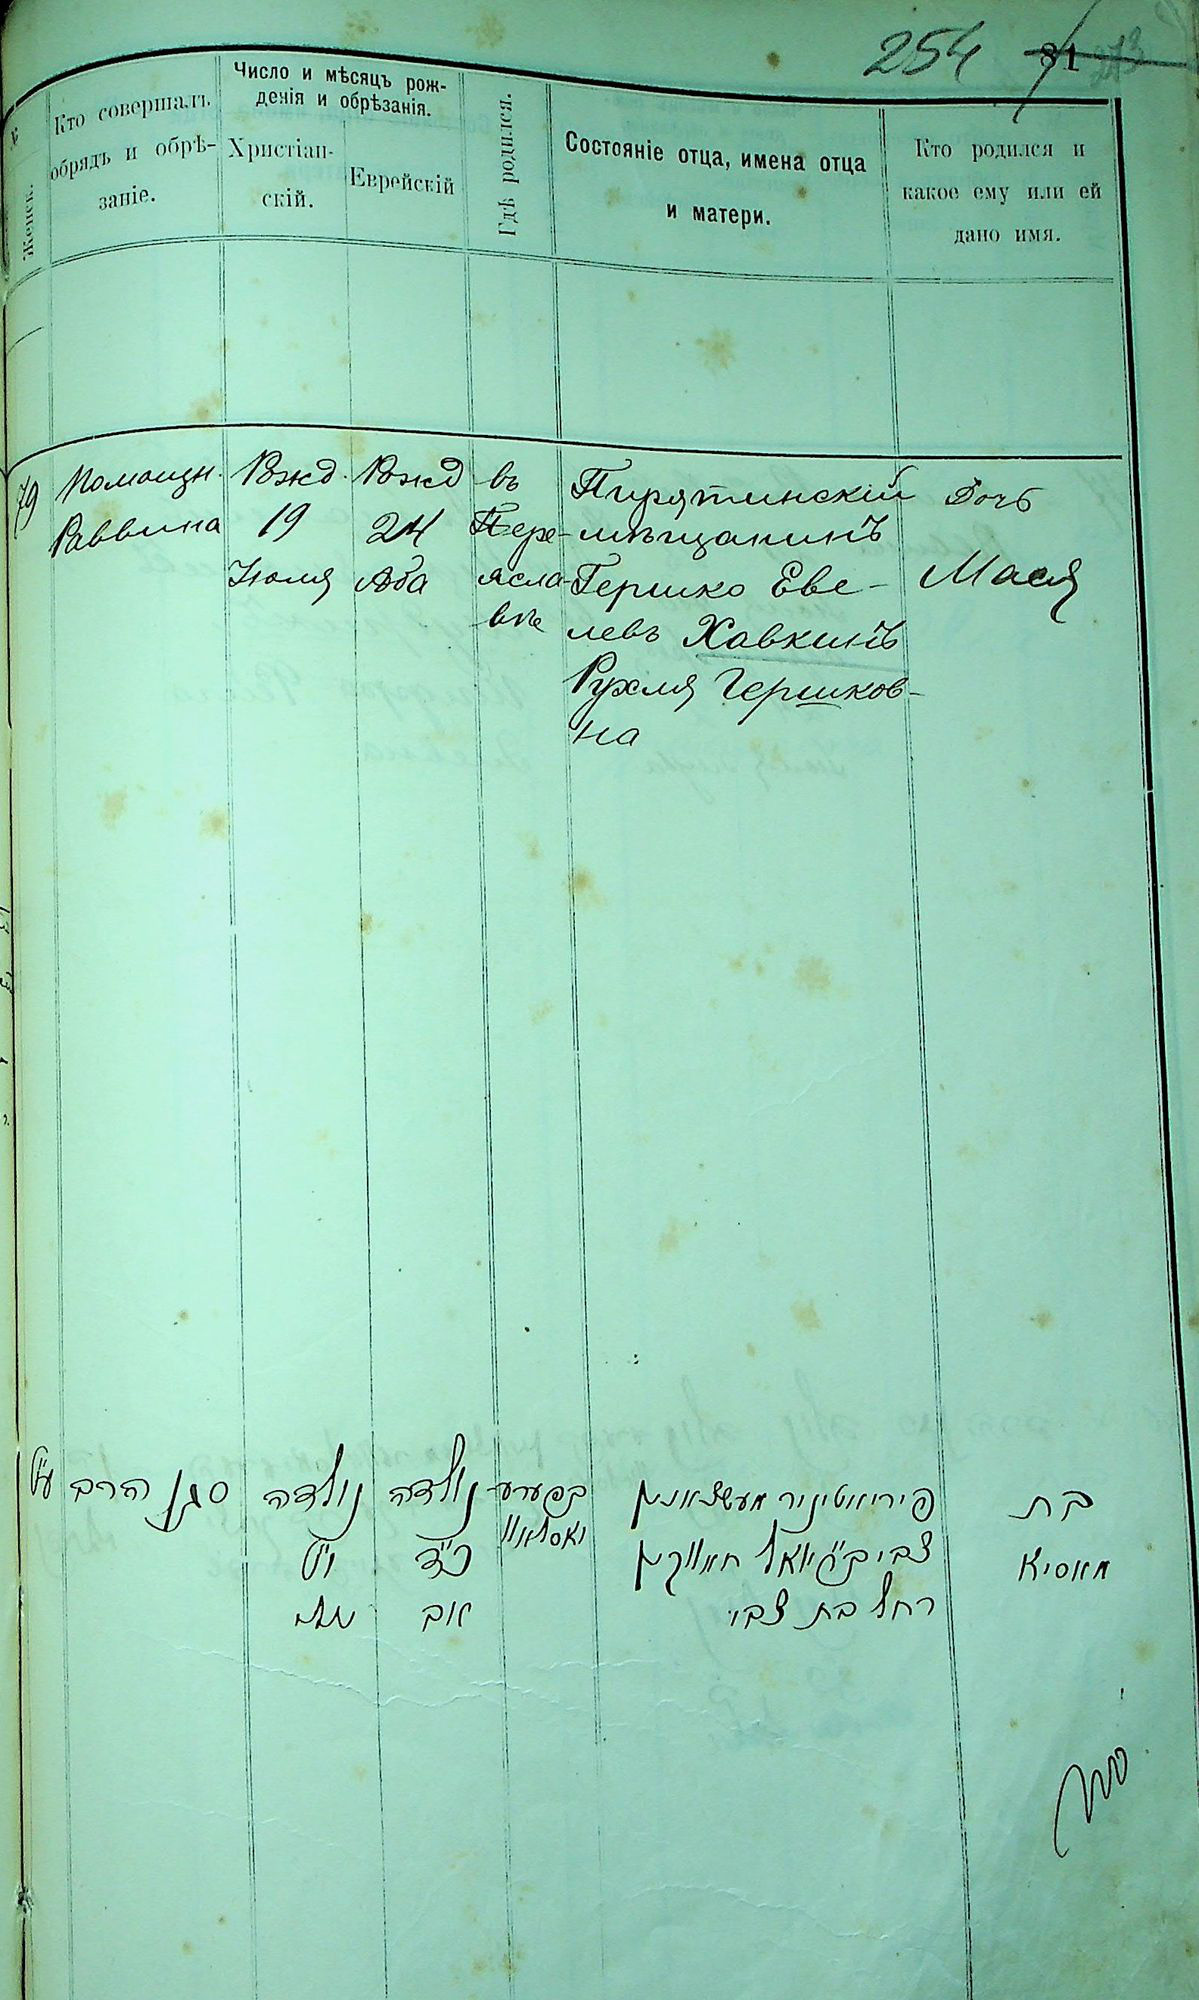 254 81 273
№
Женск.
Кто совершалъ
обрядъ и обрѣ-
заніе.
Число и мѣсяцъ рож-
денія и обрѣзанія.
Христіан-
скій.
Еврейскій
Гдѣ родился.
Состояніе отца, имена отца
и матери.
Кто родился и
какое ему или ей
дано имя.
79
Помощн.
Раввина
Рожд.
19
Іюля
Рожд
24
Аба
въ
Пере-
ясла-
вле
Пирятинскій
мѣщанинъ
Гершко Еве-
левъ Хавкинъ
Рухля Гершков-
на
Дочь
Мася
ע״ט
סגן הרב
נולדה
י״ט
יולי
נולדה
כ״ד
אוב
בפערע
יאסלאוו
פיריאטינער מעשצאנין
צבי ב״ר יואל חאווקין
רחל בת צבי
בת
מאסיא